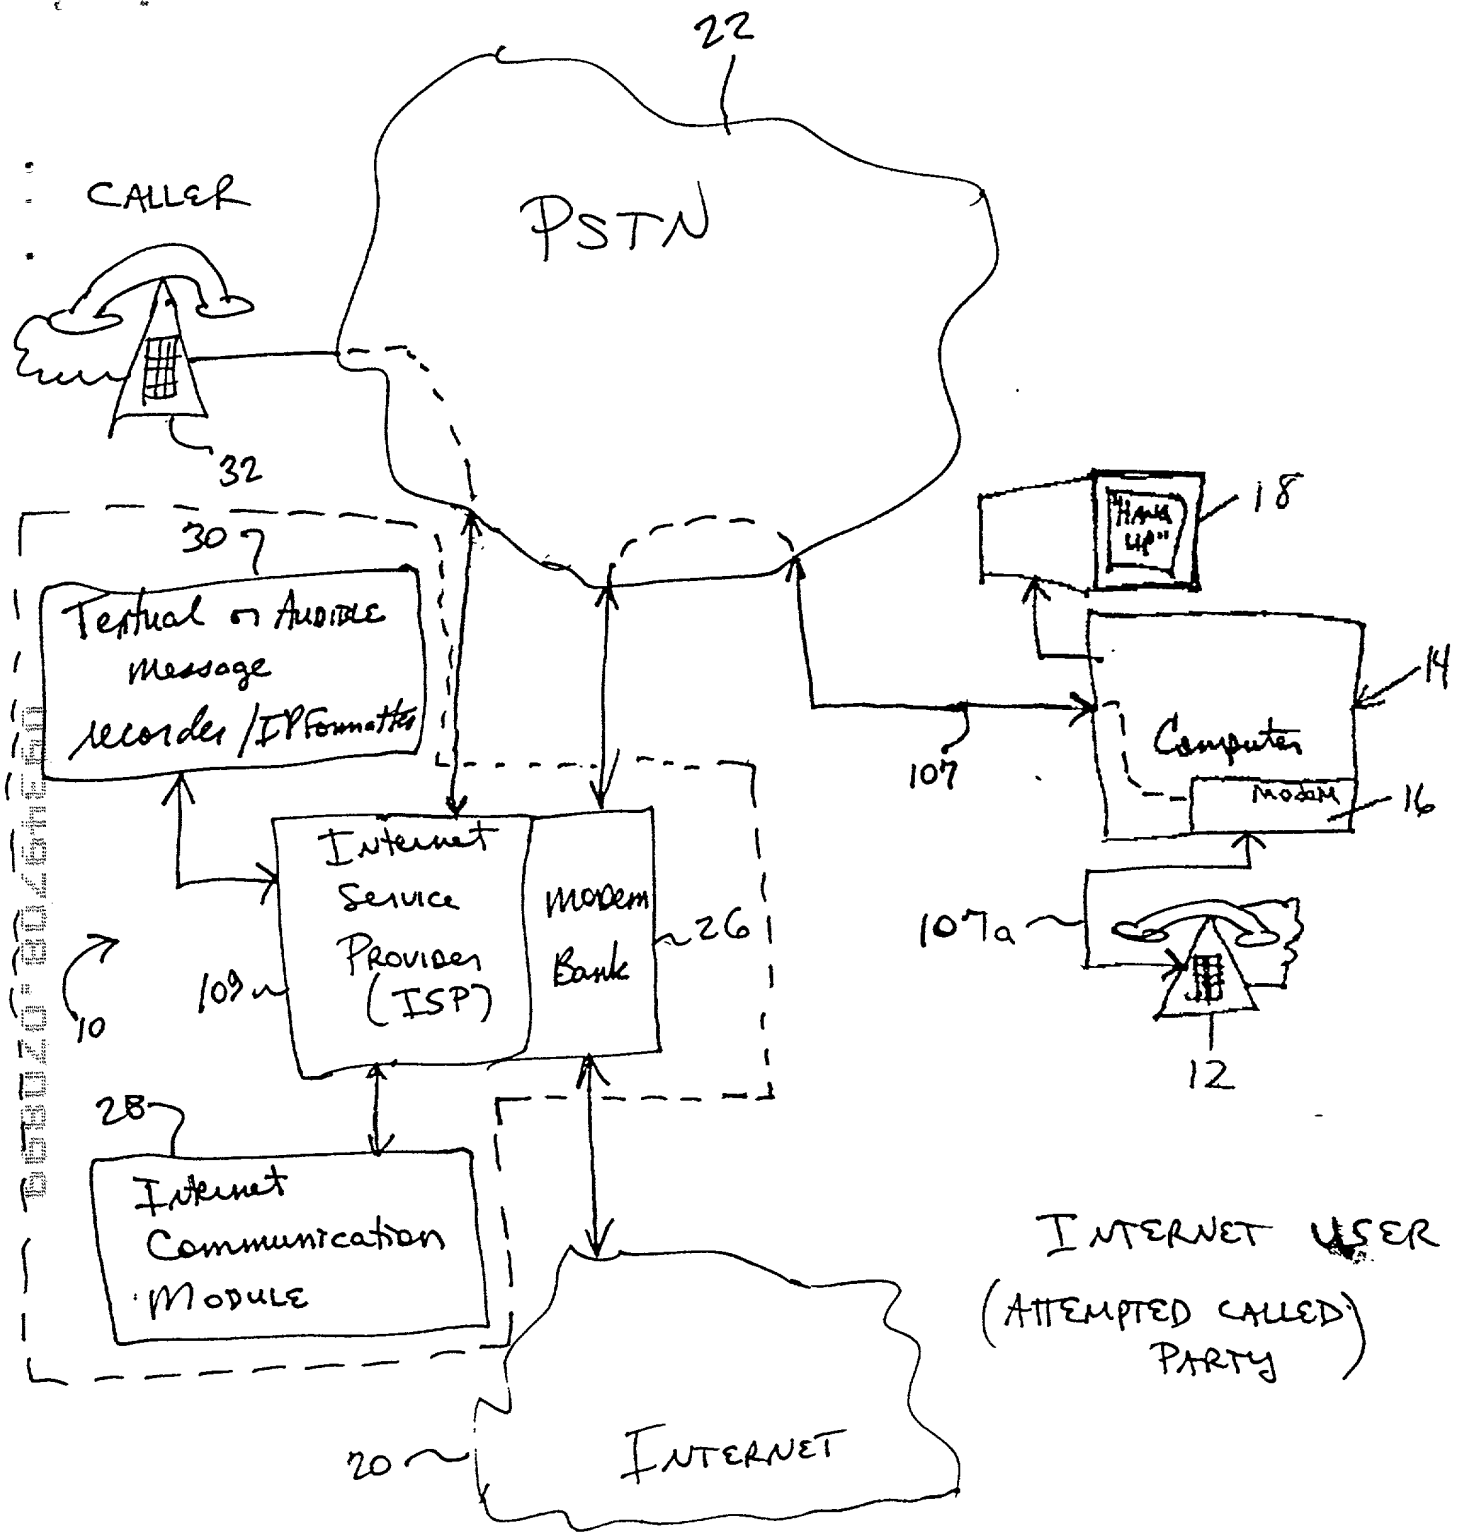 22
PSTN
CALLER
32
30
Textual or AUDIBLE
message
recorder/IP Formatter
"HANG
UP"
18
14
Computer
modem
16
107
107a
12
Internet
Service
PROVIDER
(ISP)
modem
Bank
26
109
10
28
Internet
Communication
MODULE
INTERNET USER
(ATTEMPTED CALLED)
PARTY
20
INTERNET